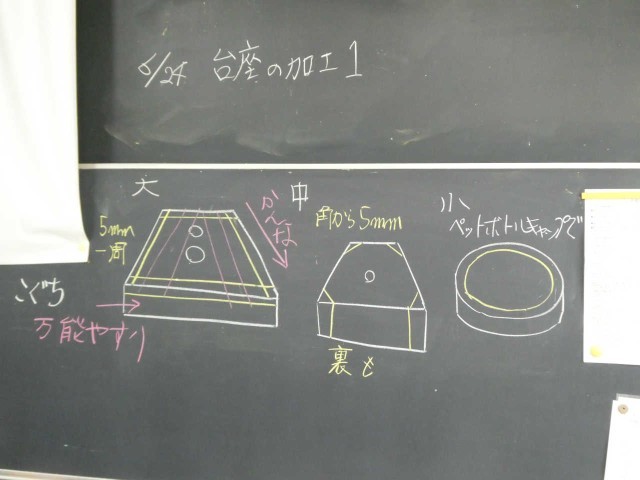 6/24 台座の加工1
大
かんな
5mm
一周
こぐち
万能やすり
中
角から5mm
裏も
小
ペットボトルキャップで